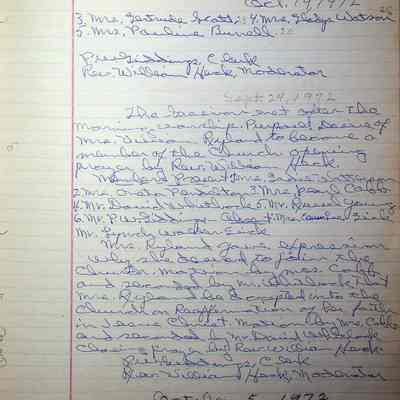 Oct. 1, 1972
3. Mrs. Gertrude Scott, 4. Mrs. Gladys Watson
5. Mrs. Pauline Burrell
P. W. Giddings, Clerk
Rev. William Hack, Moderator
Sept 24, 1972
The Session met after the
morning worship. Purpose: Desire of
Mrs. Wilson Ryland to become a
member of the Church opening
prayer by Rev. William Hack.
Members Present: 1 Mrs.
2 Mrs. Oran Pendleton 3 Mrs. Pearl Cobb
4 Mr. David Whitlock 5. Mr. Russell Young
6. Mr. P. W. Giddings. Also 7. Mrs. Sick
Mr. Lynch Warren Sick
Mrs. Ryland gave expression
why she desired to join the
Church. Motion by Mrs. Cobb
and seconded by Mr. Whitlock that
Mrs. Ryland be accepted into the
Church on Reaffirmation of her faith
in Jesus Christ. Motion by Mrs. Cobb
and seconded by Mr. David Whitlock
Closing prayer by Rev. William Hack.
P. W. Giddings, Clerk
Rev. William Hack, Moderator
October 5, 1972